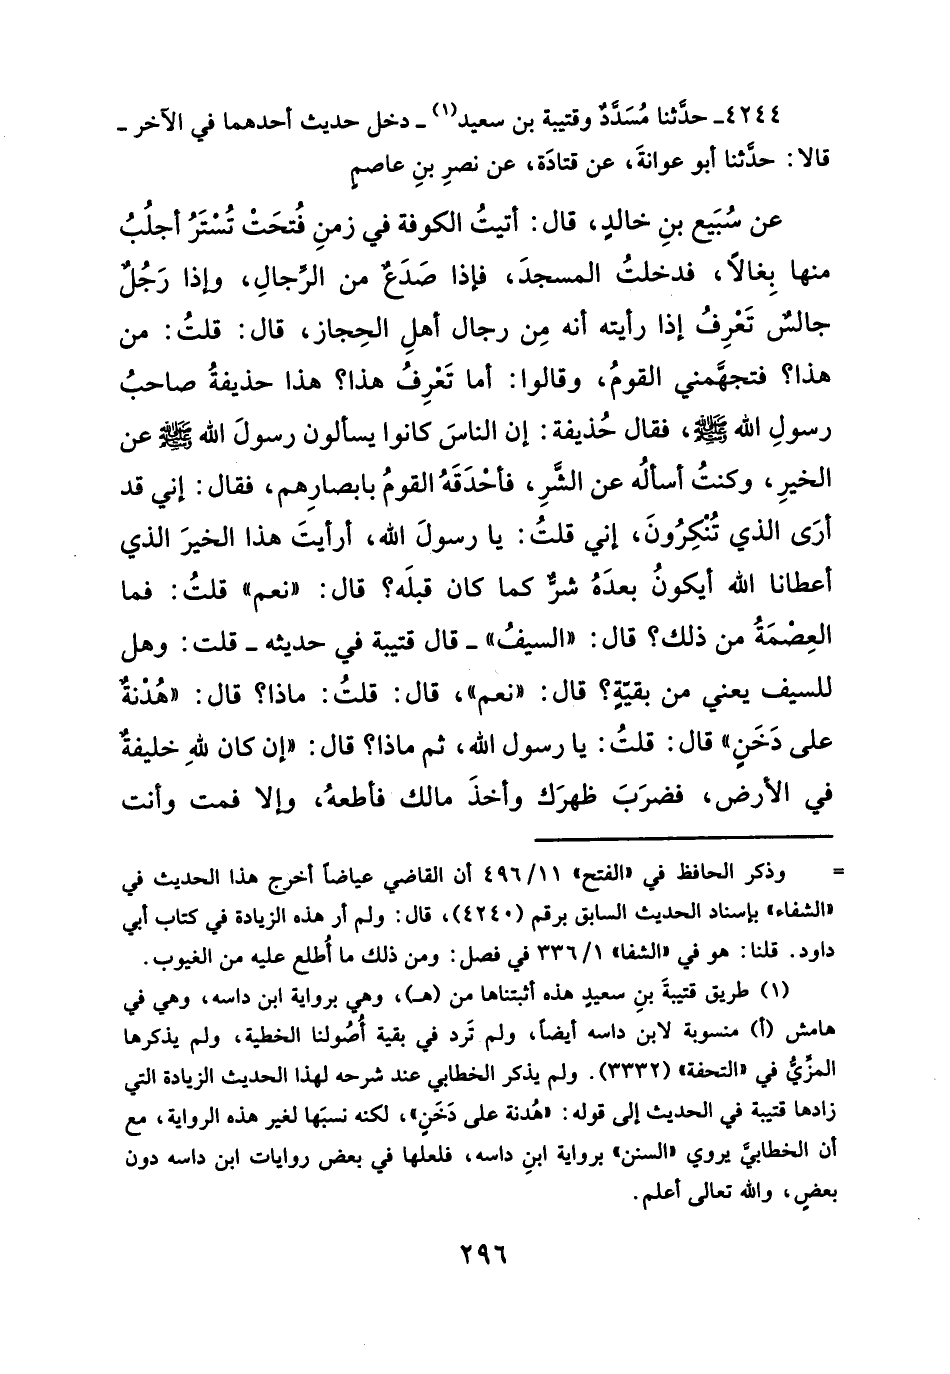 ٤٢٤٤ـ حدَّثنا مُسَدَّدٌ وقتيبة بن سعيد(١) ـ دخل حديث أحدهما في الآخر ـ
قالا: حدَّثنا أبو عوانةَ، عن قتادَة، عن نصرِ بنِ عاصمٍ
عن سُبَيع بنِ خالدٍ، قال: أتيتُ الكوفة في زمنِ فُتحَتْ تُسْتَرُ أجلُبُ
منها بِغالاً، فدخلتُ المسجدَ، فإذا صَدَعٌ من الرِّجالِ، وإذا رَجُلٌ
جالسٌ تَعْرِفُ إذا رأيته أنه مِن رجال أهلِ الحِجاز، قال: قلتُ: من
هذا؟ فتجهَّمني القومُ، وقالوا: أما تَعْرِفُ هذا؟ هذا حذيفةُ صاحبُ
رسولِ الله ﷺ، فقال حُذيفة: إن الناسَ كانوا يسألون رسولَ الله ﷺ عن
الخيرِ، وكنتُ أسألُه عن الشَّرِ، فأحْدَقَهُ القومُ بابصارِهم، فقال: إني قد
أرَى الذي تُنْكِرُونَ، إني قلتُ: يا رسولَ الله، أرأيتَ هذا الخيرَ الذي
أعطانا الله أيكونُ بعدَهُ شرٌّ كما كان قبلَه؟ قال: «نعم» قلتُ: فما
العِصْمَةُ من ذلك؟ قال: «السيفُ» ـ قال قتيبة في حديثه ـ قلت: وهل
للسيف يعني من بقيّةٍ؟ قال: «نعم»، قال: قلتُ: ماذا؟ قال: «هُدْنةٌ
على دَخَنٍ» قال: قلتُ: يا رسول الله، ثم ماذا؟ قال: «إن كان للهِ خليفةٌ
في الأرض، فضرَبَ ظهرَك وأخذَ مالك فأطعهُ، وإلا فمت وأنت
= وذكر الحافظ في «الفتح» ٤٩٦/١١ أن القاضي عياضاً أخرج هذا الحديث في
«الشفاء» بإسناد الحديث السابق برقم (٤٢٤٠)، قال: ولم أر هذه الزيادة في كتاب أبي
داود. قلنا: هو في «الشفا» ٣٣٦/١ في فصل: ومن ذلك ما أُطلع عليه من الغيوب.
(١) طريق قتيبةَ بنِ سعيدٍ هذه أثبتناها من (هـ)، وهي برواية ابن داسه، وهي في
هامش (أ) منسوبة لابن داسه أيضاً، ولم تَرد في بقية أُصُولنا الخطية، ولم يذكرها
المزِّيُّ في «التحفة» (٣٣٣٢). ولم يذكر الخطابي عند شرحه لهذا الحديث الزيادة التي
زادها قتيبة في الحديث إلى قوله: «هُدنة على دَخَنٍ»، لكنه نسبَها لغير هذه الرواية، مع
أن الخطابيَّ يروي «السنن» برواية ابنِ داسه، فلعلها في بعض روايات ابن داسه دون
بعضٍ، والله تعالى أعلم.
٢٩٦